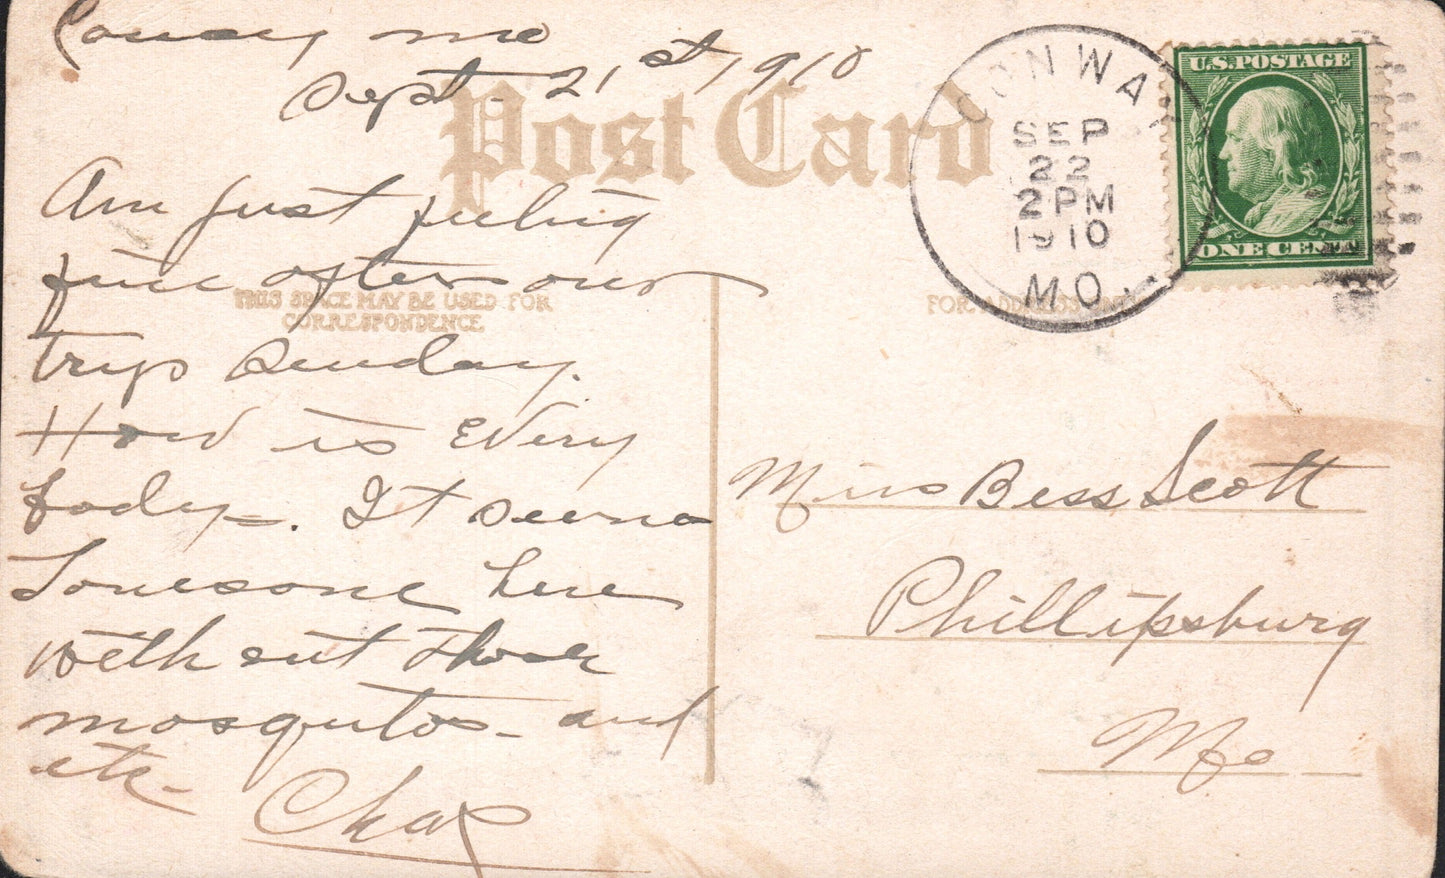 Mo
Sept 21st, 1910
Post Card
CONWAY
SEP
22
2 PM
1910
MO.
U.S. POSTAGE
ONE CENT
THIS SPACE MAY BE USED FOR
CORRESPONDENCE
FOR ADDRESS ONLY
Am just feeling
fine after our
trip Sunday.
How is Every
body. It seems
Lonesome here
with out those
mosquitos - and
etc -
Chas
Miss Bess Scott
Phillipsburg
Mo